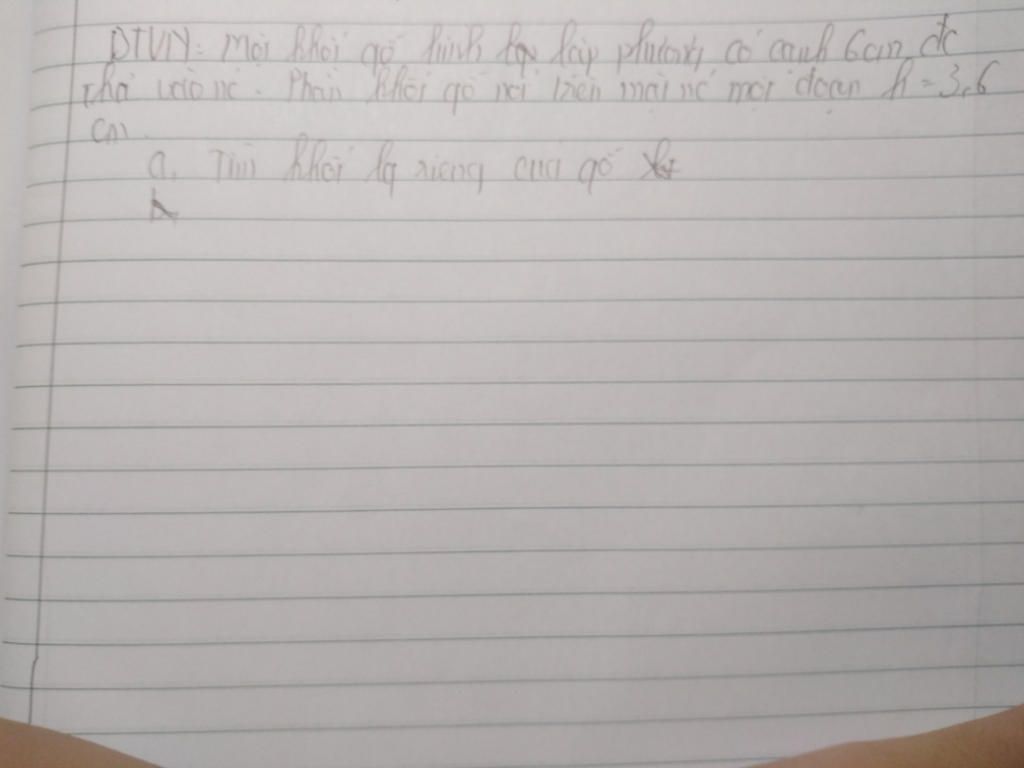 BTVN: Một khối gỗ hình lập phương có cạnh 6cm đc
thả vào nc. Phần khối gỗ nổi trên mặt nc một đoạn h = 3,6
cm.
a. Tìm khối lg riêng của gỗ
b